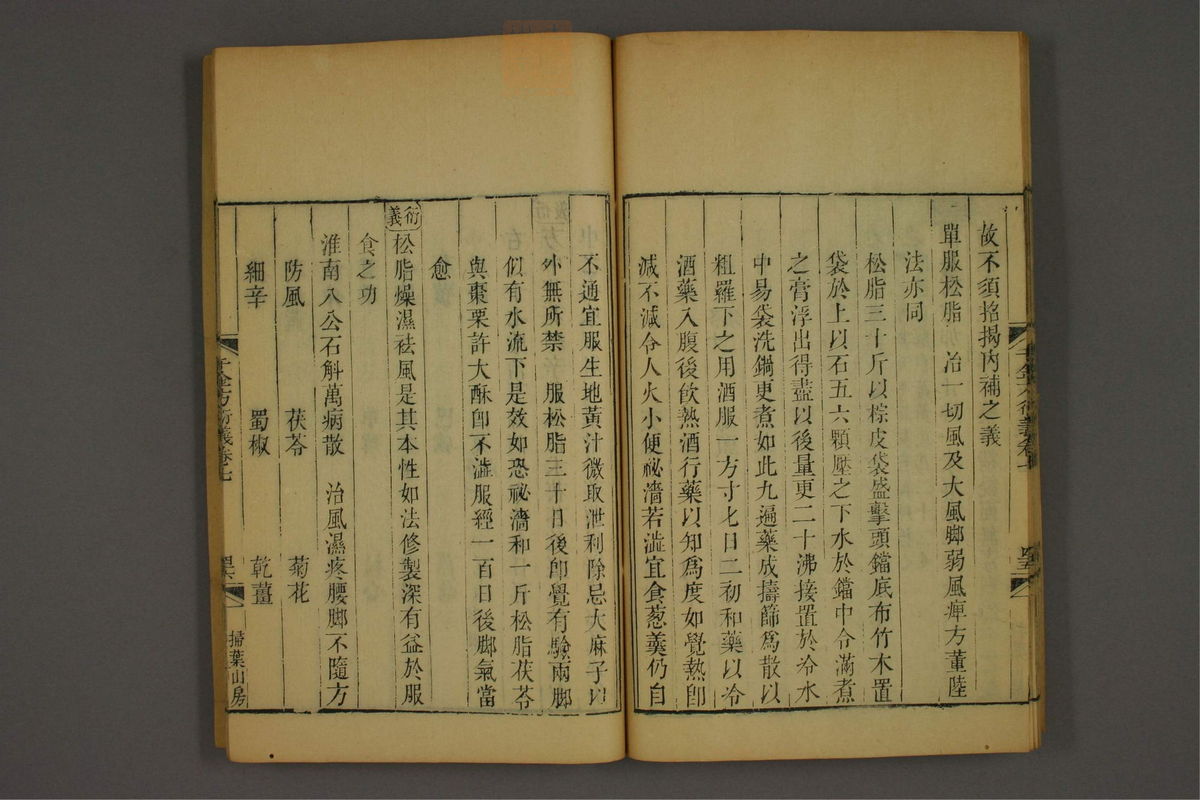 故不須掐揭內補之義
單服松脂 治一切風及大風脚弱風痺方薰陸
法亦同
松脂三十斤以棕皮袋盛擊頭鐺底布竹木置
袋於上以石五六顆壓之下水於鐺中令滿煮
之膏浮出得盡以後量更二十沸接置於冷水
中易袋洗鍋更煮如此九遍藥成擣篩爲散以
粗羅下之用酒服一方寸匕日二初和藥以冷
酒藥入腹後飲熱酒行藥以知爲度如覺熱卽
減不減令人大小便祕濇若澁宜食葱羹仍自
不通宜服生地黃汁微取泄利除忌大麻子以
外無所禁 服松脂三十日後卽覺有驗兩脚
似有水流下是效如恐祕濇和一斤松脂茯苓
與棗栗許大酥卽不澁服經一百日後脚氣當
愈
衍義 松脂燥濕祛風是其本性如法修製深有益於服
食之功
淮南八公石斛萬病散 治風濕疼腰脚不隨方
防風 茯苓 菊花
細辛 蜀椒 乾薑
千金方衍義卷七
掃葉山房